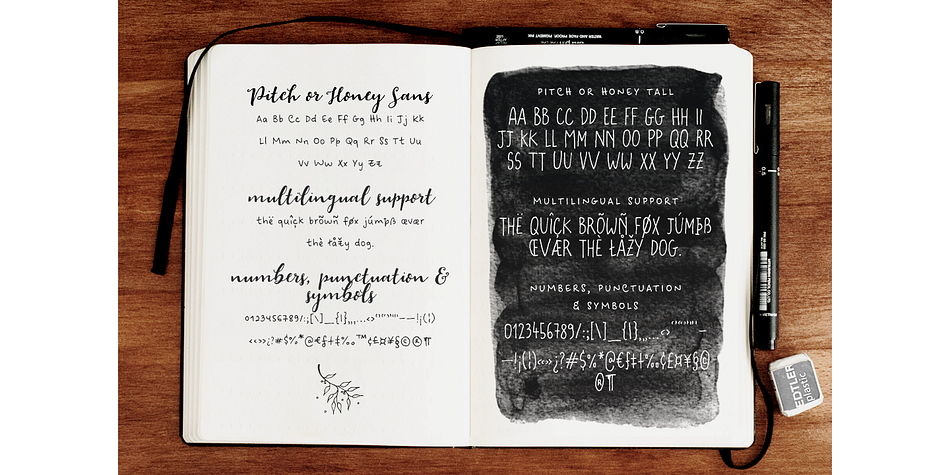 Pitch or Honey Sans
Aa Bb Cc Dd Ee Ff Gg Hh Ii Jj Kk
Ll Mm Nn Oo Pp Qq Rr Ss Tt Uu
Vv Ww Xx Yy Zz
multilingual support
thë quîçk brõwñ føx júmþß œvær
thè łåžy dog.
numbers, punctuation &
symbols
0123456789/:;[\]_{|},,,...<>''""""–—!¡(¦)
‹‹«»¿?#$%*@€ƒ†‡‰™¢£¤¥§©®¶
PITCH OR HONEY TALL
AA BB CC DD EE FF GG HH II
JJ KK LL MM NN OO PP QQ RR
SS TT UU VV WW XX YY ZZ
MULTILINGUAL SUPPORT
THË QUÎÇK BRÕWÑ FØX JÚMÞß
ŒVÆR THÈ ŁÅŽY DOG.
NUMBERS, PUNCTUATION
& SYMBOLS
0123456789/:;[\]_{|},,,...<>''""""–
—!¡(¦)‹«»¿?#$%*@€ƒ†‡‰¢£¤¥§©
®¶
WATER AND FADE PROOF, PIGMENT INK
0.5
EDTLER
plastic